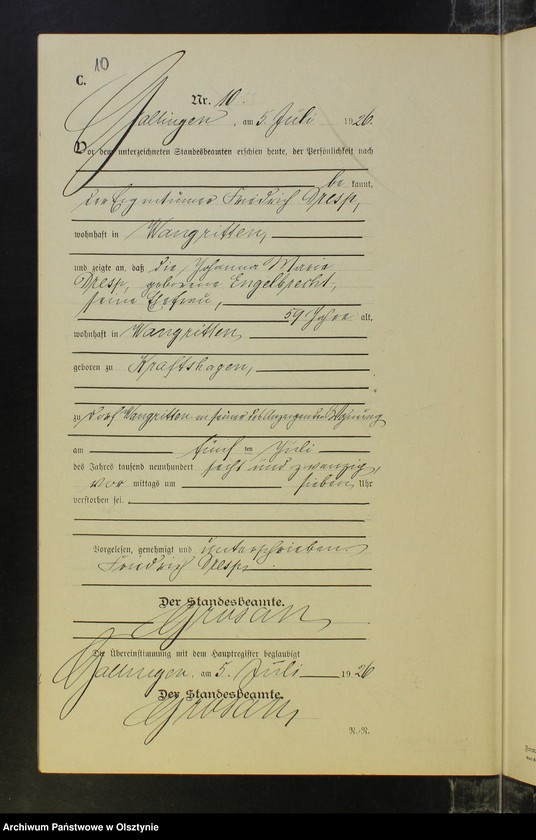 C.
10
Nr. 10.
Gallingen, am 5 Juli 1926.
Vor dem unterzeichneten Standesbeamten erschien heute, der Persönlichkeit nach
be kannt,
der Eigentümer Friedrich Dresp,
wohnhaft in Wangritten,
und zeigte an, daß die Johanna Marie
Dresp, geborene Engelbrecht,
seine Ehefrau,
59 Jahre alt,
wohnhaft in Wangritten,
geboren zu Kraftshagen,
zu Dorf Wangritten in seiner des Anzeigenden Wohnung
am fünf ten Juli
des Jahres tausend neunhundert sechs und zwanzig,
vor mittags um sieben Uhr
verstorben sei.
Vorgelesen, genehmigt und unterschrieben
Friedrich Dresp.
Der Standesbeamte.
Grosan
Die Übereinstimmung mit dem Hauptregister beglaubigt
Gallingen, am 5. Juli 1926
Der Standesbeamte.
Grosan
Archiwum Państwowe w Olsztynie